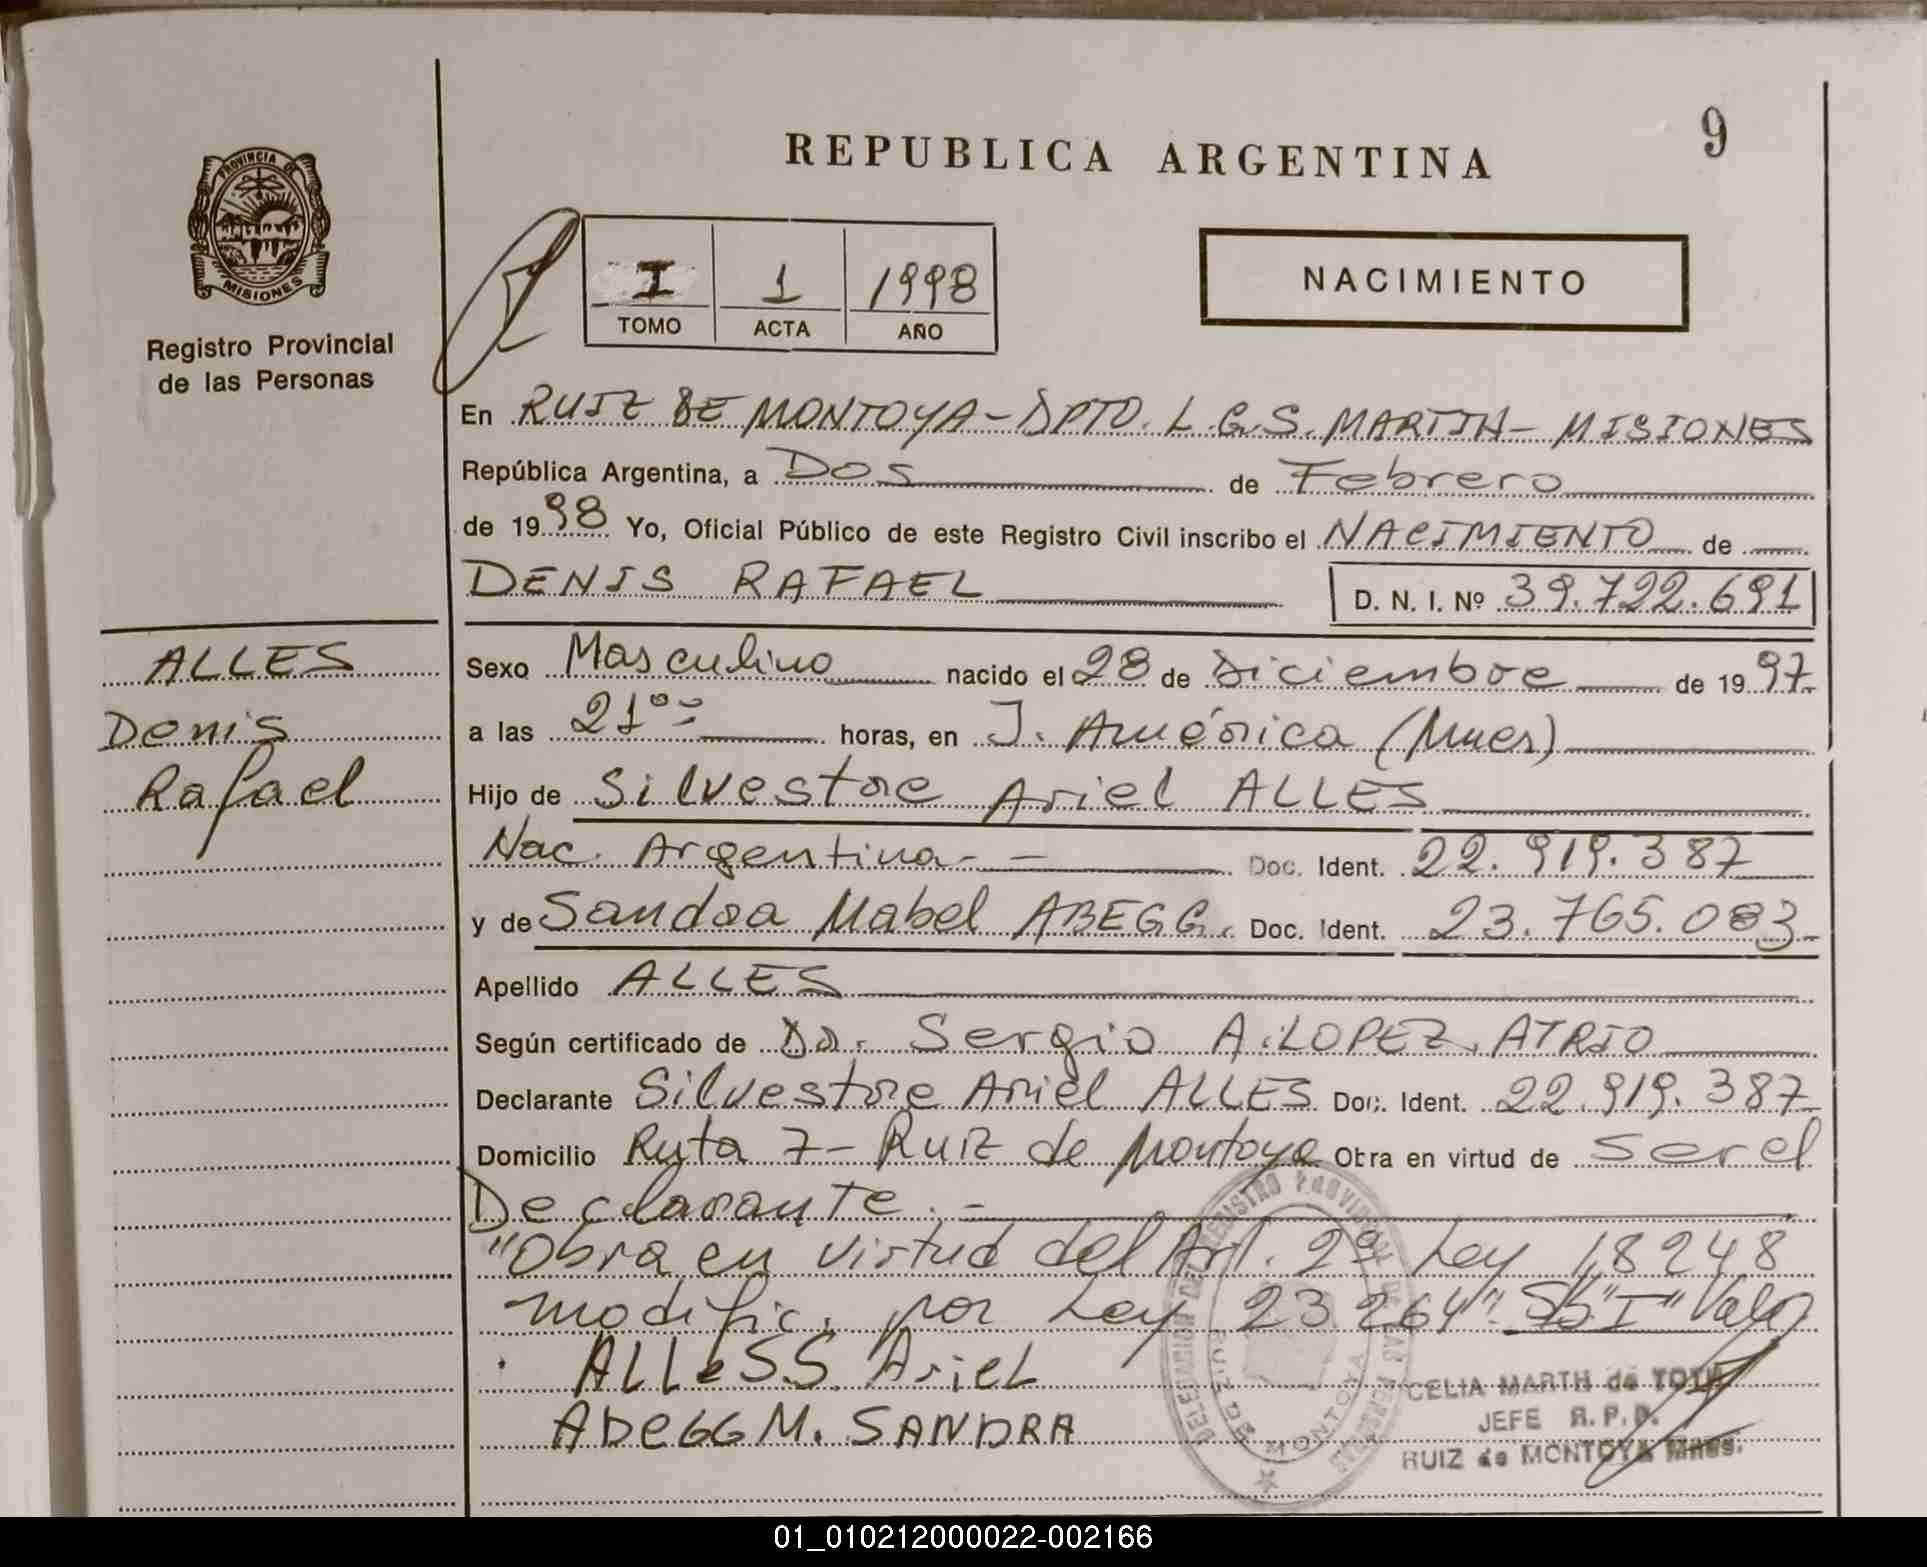 9
REPUBLICA ARGENTINA
PROVINCIA DE
MISIONES
Registro Provincial
de las Personas
I 1 1998
TOMO ACTA AÑO
NACIMIENTO
En RUIZ DE MONTOYA - DPTO. L.G.S. MARTIN - MISIONES
República Argentina, a Dos de Febrero
de 1998 Yo, Oficial Público de este Registro Civil inscribo el NACIMIENTO de
DENIS RAFAEL D. N. I. Nº 39.722.691
ALLES
Denis
Rafael
Sexo Masculino nacido el 28 de Diciembre de 1997
a las 21°° horas, en J. América (Mnes)
Hijo de Silvestre Ariel ALLES
Nac. Argentina - - Doc. Ident. 22.919.387
y de Sandra Mabel ABEGG. Doc. Ident. 23.765.083
Apellido ALLES
Según certificado de Dr. Sergio A. LOPEZ ATRIO
Declarante Silvestre Ariel ALLES Doc. Ident. 22.919.387
Domicilio Ruta 7 - Ruiz de Montoya Obra en virtud de Ser el
Declarante. -
"Obra en virtud del Art. 2º Ley 18248
modific. por Ley 23264". "I" Vale
ALLeSS Ariel
ABeGG M. SANDRA
DELEGACION DEL REGISTRO PROVINCIAL DE LAS PERSONAS
RUIZ DE MONTOYA
CELIA MARTH de TOTH
JEFE R. P. P.
RUIZ de MONTOYA Mnes.
01_010212000022-002166